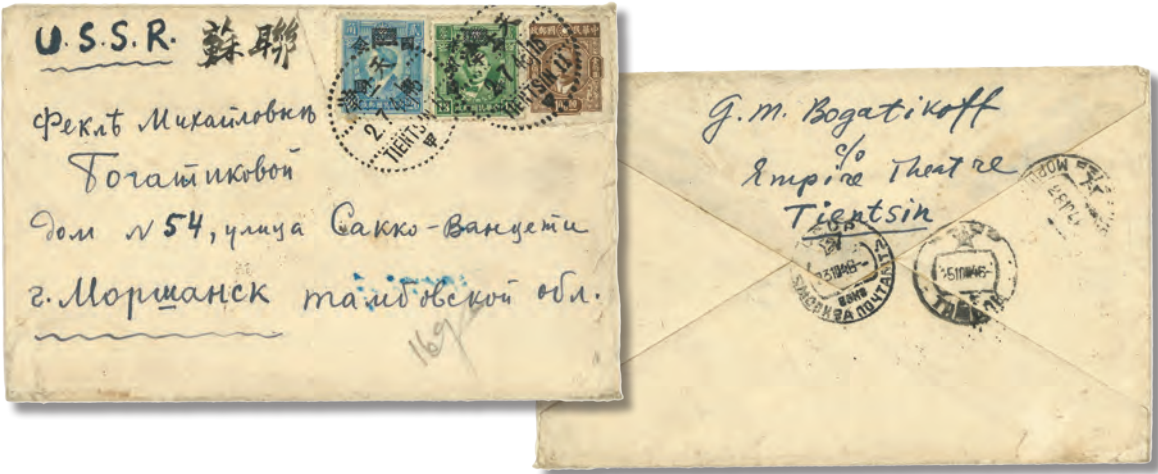 U.S.S.R. 蘇聯
Феклѣ Михайловнѣ
Богатиковой
дом N 54, улица Сакко-Ванцети
г. Моршанск тамбовской обл.
169
TIENTSIN
TIENTSIN 11
G.M. Bogatikoff
c/o
Empire Theatre
Tientsin
МОСКВА ПОЧТАМТ